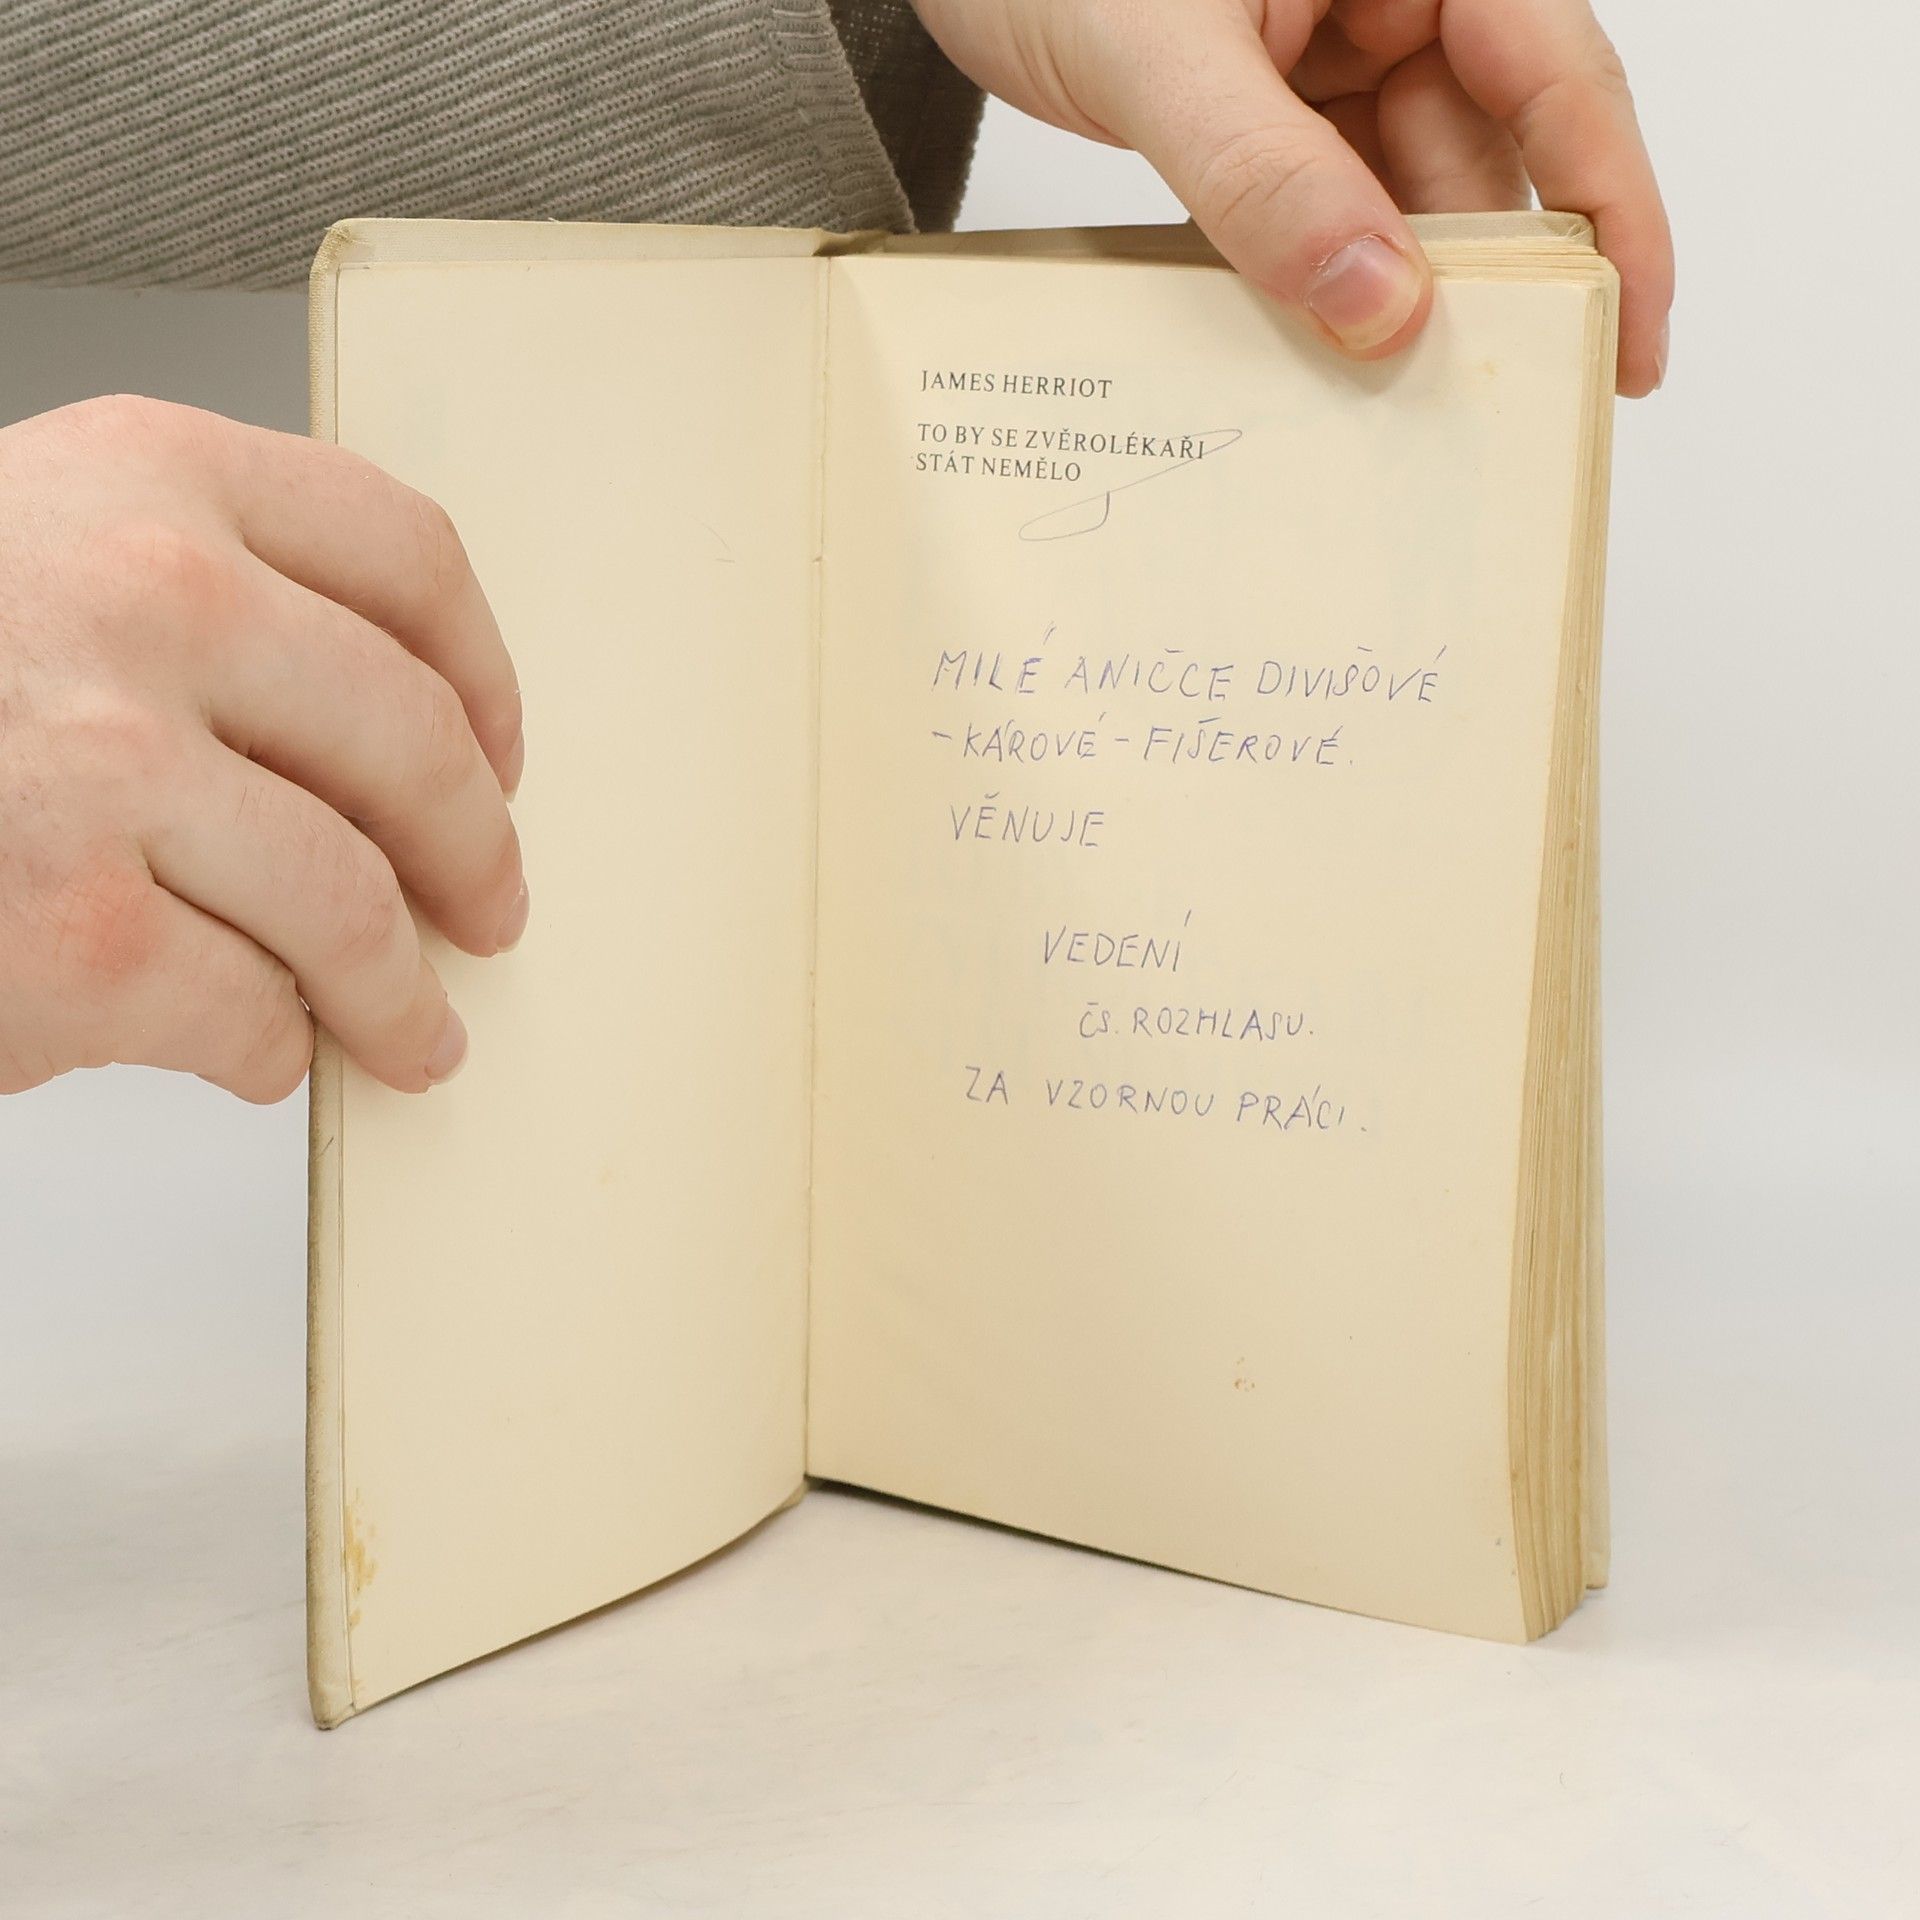 JAMES HERRIOT
TO BY SE ZVĚROLÉKAŘI
STÁT NEMĚLO
MILÉ ANIČCE DIVIŠOVÉ
-KÁROVÉ - FIŠEROVÉ.
VĚNUJE
VEDENÍ
ČS. ROZHLASU.
ZA VZORNOU PRÁCI.